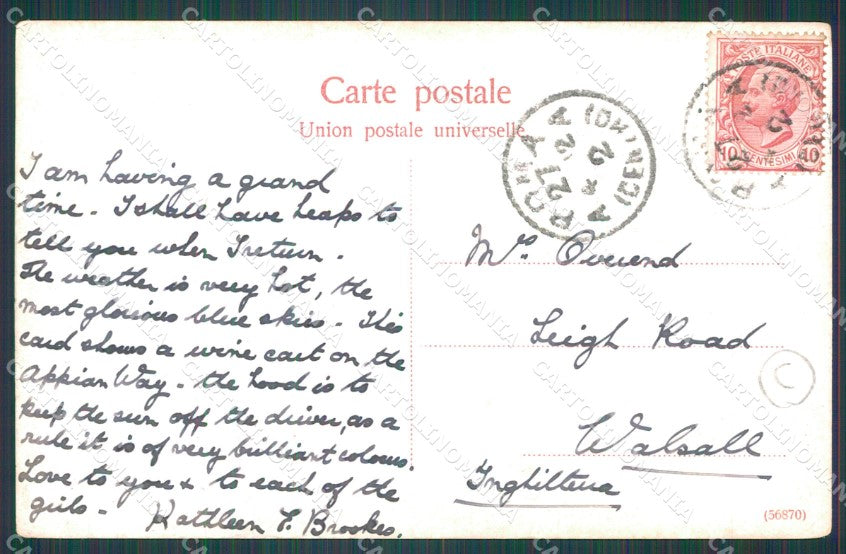 Carte postale
Union postale universelle
POSTE ITALIANE
10 CENTESIMI 10
ROMA
I am having a grand
time. I shall have heaps to
tell you when I return.
The weather is very hot, the
most glorious blue skies. This
card shows a wine cart on the
Appian Way. the hood is to
keep the sun off the driver, as a
rule it is of very brilliant colours.
Love to you & to each of the
girls.
Kathleen F. Brookes.
Mrs. Overend
Leigh Road
Walsall
Inghilterra
(56870)
C
CARTOLINOMANIA